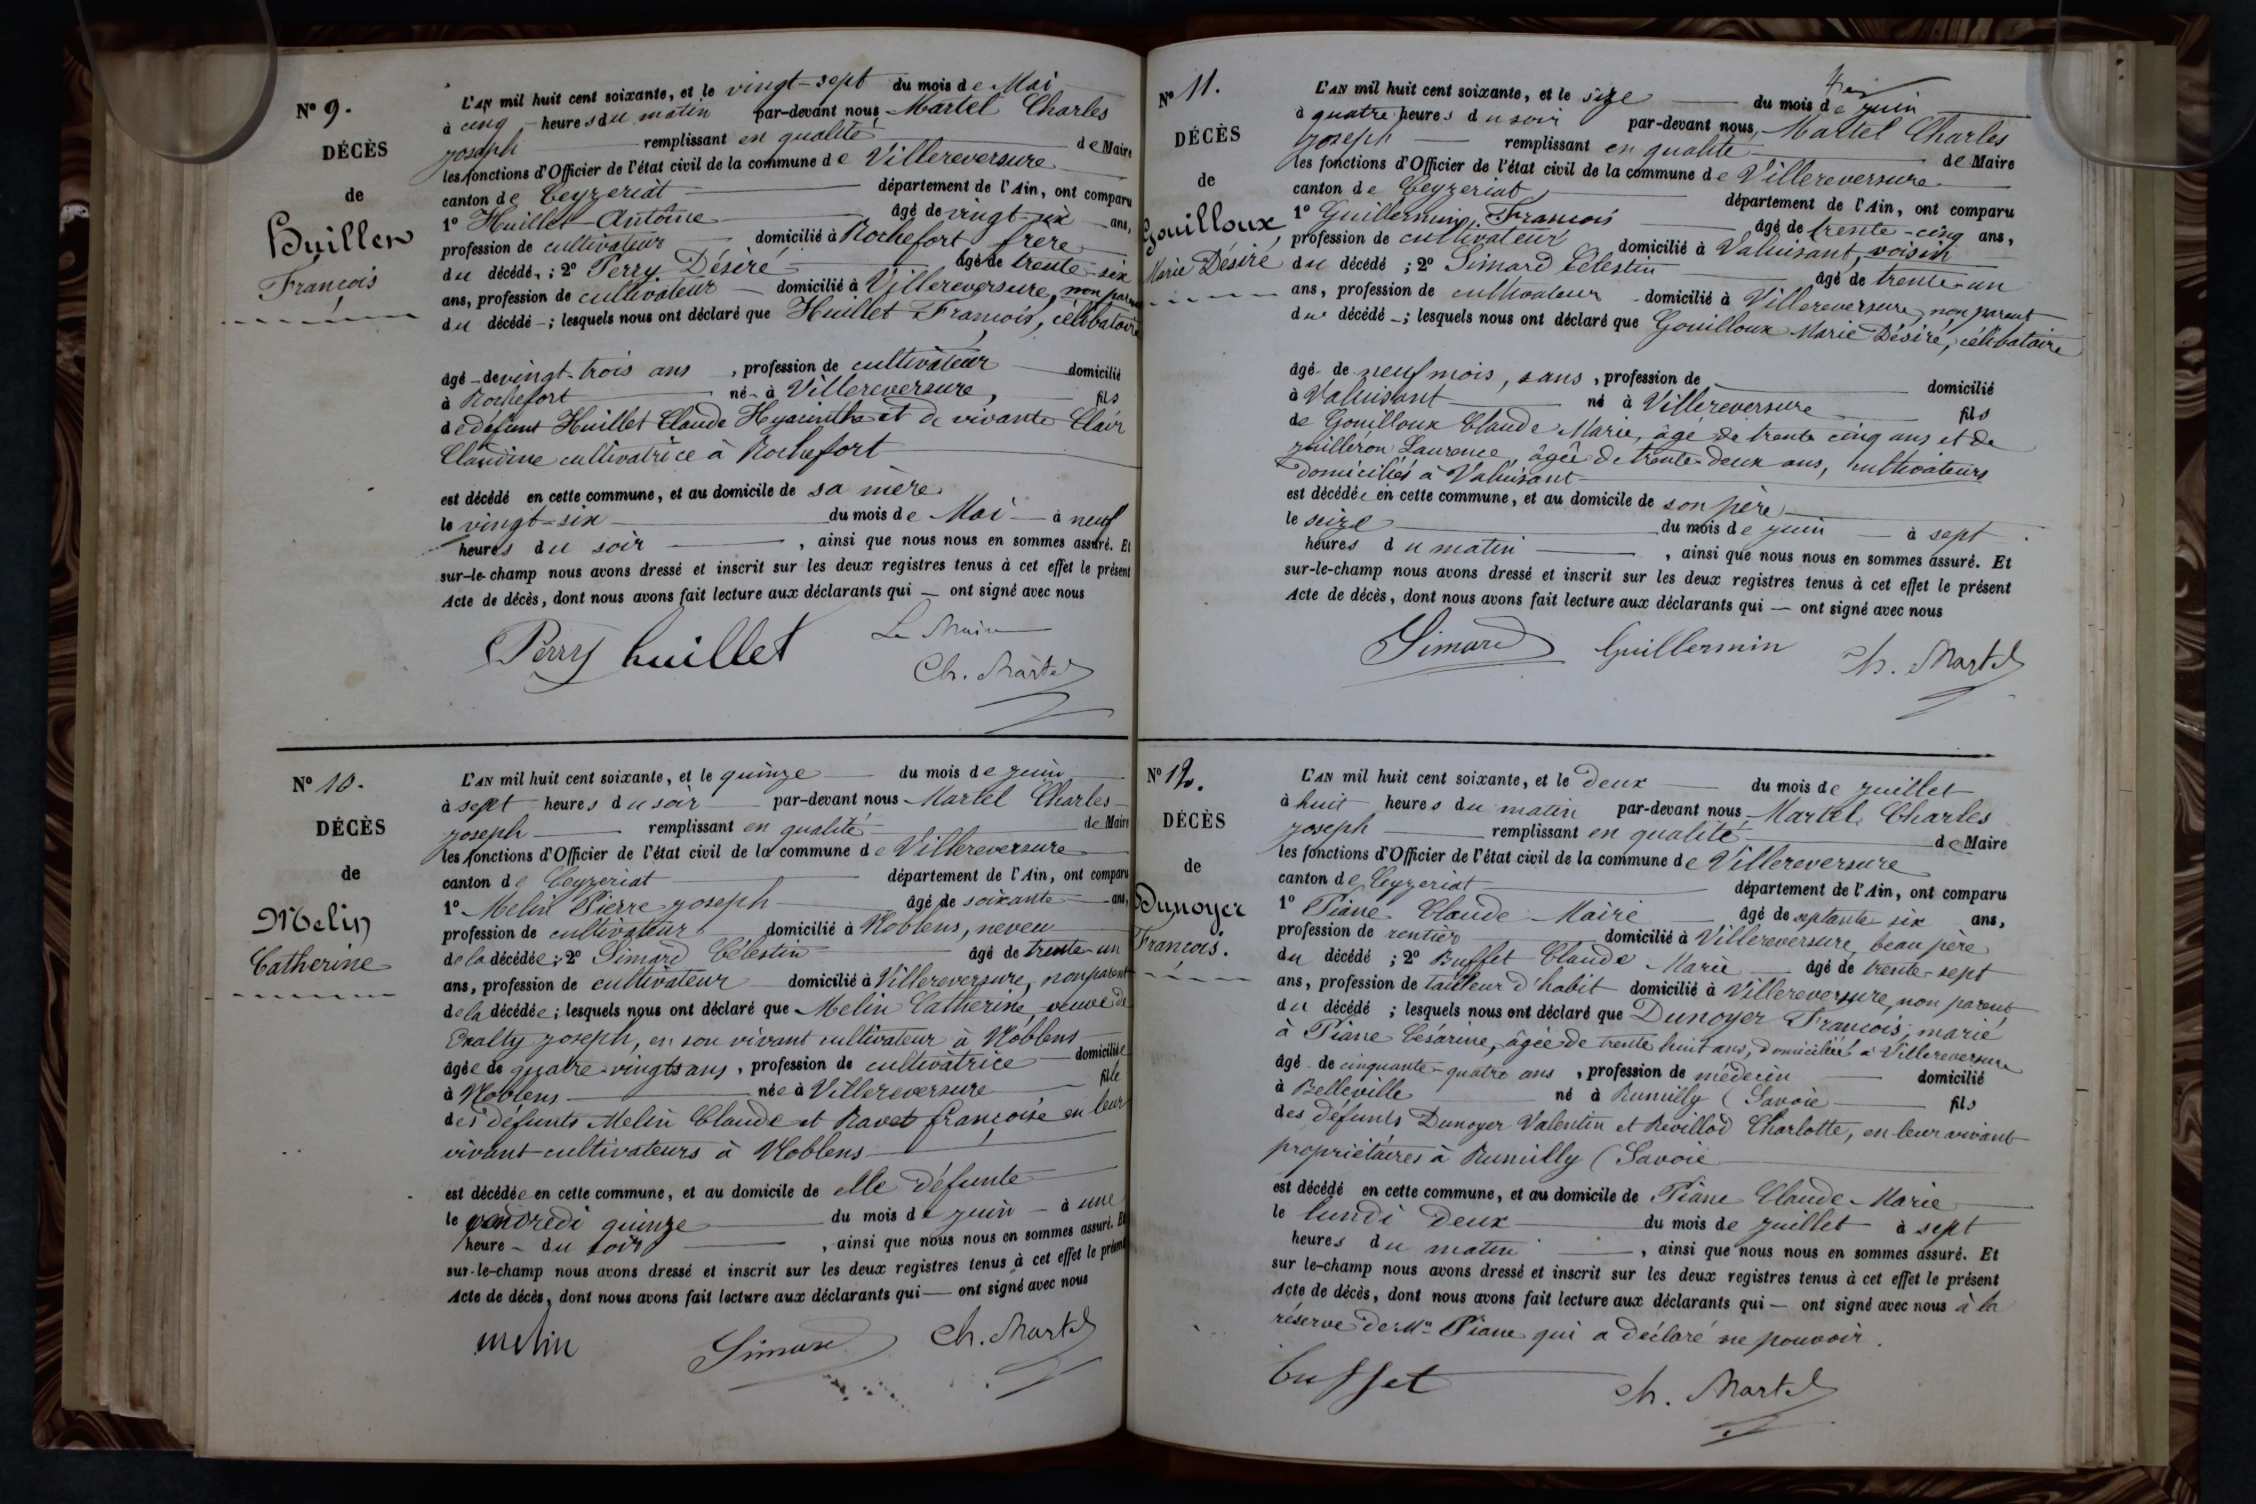 N° 9.
DÉCÈS
de
Huillet
François
L'AN mil huit cent soixante, et le vingt-sept du mois de Mai
à cinq heures du matin par-devant nous Martel Charles
joseph remplissant en qualité de Maire
les fonctions d'Officier de l'état civil de la commune de Villereversure
canton de Ceyzeriat département de l'Ain, ont comparu
1° Huillet Antoine âgé de vingt-six ans,
profession de cultivateur domicilié à Rochefort frère
du décédé ; 2° Perry Désiré âgé de trente-six
ans, profession de cultivateur domicilié à Villereversure, non parent
du décédé ; lesquels nous ont déclaré que Huillet François, célibataire
âgé de vingt-trois ans , profession de cultivateur domicilié
à Rochefort né à Villereversure, fils
de défunt Huillet Claude Hyacinthe et de vivante Clair
Claudine cultivatrice à Rochefort
est décédé en cette commune, et au domicile de sa mère
le vingt-six du mois de Mai à neuf
heures du soir , ainsi que nous nous en sommes assuré. Et
sur-le-champ nous avons dressé et inscrit sur les deux registres tenus à cet effet le présent
Acte de décès, dont nous avons fait lecture aux déclarants qui — ont signé avec nous
Perry huillet Le Maire
Ch. Martel
N° 10.
DÉCÈS
de
Melin
Catherine
L'AN mil huit cent soixante, et le quinze du mois de juin
à sept heures du soir par-devant nous Martel Charles
joseph remplissant en qualité de Maire
les fonctions d'Officier de l'état civil de la commune de Villereversure
canton de Ceyzeriat département de l'Ain, ont comparu
1° Melin Pierre joseph âgé de soixante ans,
profession de cultivateur domicilié à Noblens, neveu
de la décédée ; 2° Simard Célestin âgé de trente-un
ans, profession de cultivateur domicilié à Villereversure, non parent
de la décédée ; lesquels nous ont déclaré que Melin Catherine, veuve de
joseph, en son vivant cultivateur à Noblens
âgée de quatre-vingts ans , profession de cultivatrice domiciliée
à Noblens née à Villereversure fille
des défunts Melin Claude et Ravet françoise en leur
vivant cultivateurs à Noblens
est décédée en cette commune, et au domicile de elle défunte
le vendredi quinze du mois de juin à une
heure du soir , ainsi que nous nous en sommes assuré. Et
sur-le-champ nous avons dressé et inscrit sur les deux registres tenus à cet effet le présent
Acte de décès, dont nous avons fait lecture aux déclarants qui — ont signé avec nous
melin Simard Ch. Martel
N° 11.
DÉCÈS
de
Gouilloux
Marie Désiré
L'AN mil huit cent soixante, et le size du mois de juin
à quatre heures du soir par-devant nous, Martel Charles
joseph remplissant en qualité de Maire
les fonctions d'Officier de l'état civil de la commune de Villereversure
canton de Ceyzeriat département de l'Ain, ont comparu
1° Guillermin François âgé de trente-cinq ans,
profession de cultivateur domicilié à Valuisant, voisin
du décédé ; 2° Simard Célestin âgé de trente-un
ans, profession de cultivateur domicilié à Villereversure, non parent
du décédé ; lesquels nous ont déclaré que Gouilloux Marie Désiré, célibataire
âgé de neuf mois, sans , profession de domicilié
à Valuisant né à Villereversure fils
de Gouilloux Claude Marie, âgé de trente cinq ans et de
juilleron Laurence, âgée de trente-deux ans, cultivateurs
domiciliés à Valuisant
est décédé en cette commune, et au domicile de son père
le seize du mois de juin à sept
heures du matin , ainsi que nous nous en sommes assuré. Et
sur-le-champ nous avons dressé et inscrit sur les deux registres tenus à cet effet le présent
Acte de décès, dont nous avons fait lecture aux déclarants qui — ont signé avec nous
Simard Guillermin Ch. Martel
N° 12.
DÉCÈS
de
Dunoyer
François.
L'AN mil huit cent soixante, et le deux du mois de juillet
à huit heures du matin par-devant nous Martel Charles
joseph remplissant en qualité de Maire
les fonctions d'Officier de l'état civil de la commune de Villereversure
canton de Ceyzeriat département de l'Ain, ont comparu
1° Piane Claude Marie âgé de septante six ans,
profession de rentier domicilié à Villereversure, beau père
du décédé ; 2° Buffet Claude Marie âgé de trente-sept
ans, profession de tailleur d'habit domicilié à Villereversure, non parent
du décédé ; lesquels nous ont déclaré que Dunoyer François, marié
à Piane Césarine, âgée de trente huit ans, domiciliée à Villereversure
âgé de cinquante-quatre ans , profession de médecin domicilié
à Belleville né à Rumilly (Savoie fils
des défunts Dunoyer Valentin et Revillod Charlotte, en leur vivant
propriétaires à Rumilly (Savoie
est décédé en cette commune, et au domicile de Piane Claude-Marie
le lundi deux du mois de juillet à sept
heures du matin , ainsi que nous nous en sommes assuré. Et
sur le-champ nous avons dressé et inscrit sur les deux registres tenus à cet effet le présent
Acte de décès, dont nous avons fait lecture aux déclarants qui — ont signé avec nous à la
réserve de Mr Piane qui a déclaré ne pouvoir.
buffet Ch. Martel